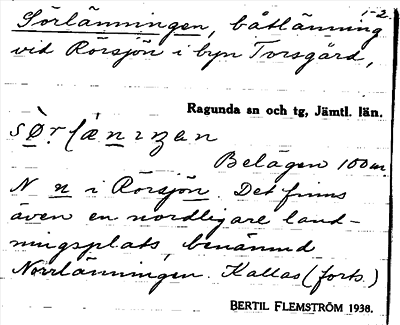 1-2.
Sörlänningen, båtlänning
vid Rörsjön i byn Torsgård,
Ragunda sn och tg, Jämtl. län.
Belägen 100 m.
N n i Rörsjön. Det finns
även en nordligare land-
ningsplats, benämnd
Norrlänningen. Kallas (forts.)
BERTIL FLEMSTRÖM 1938.